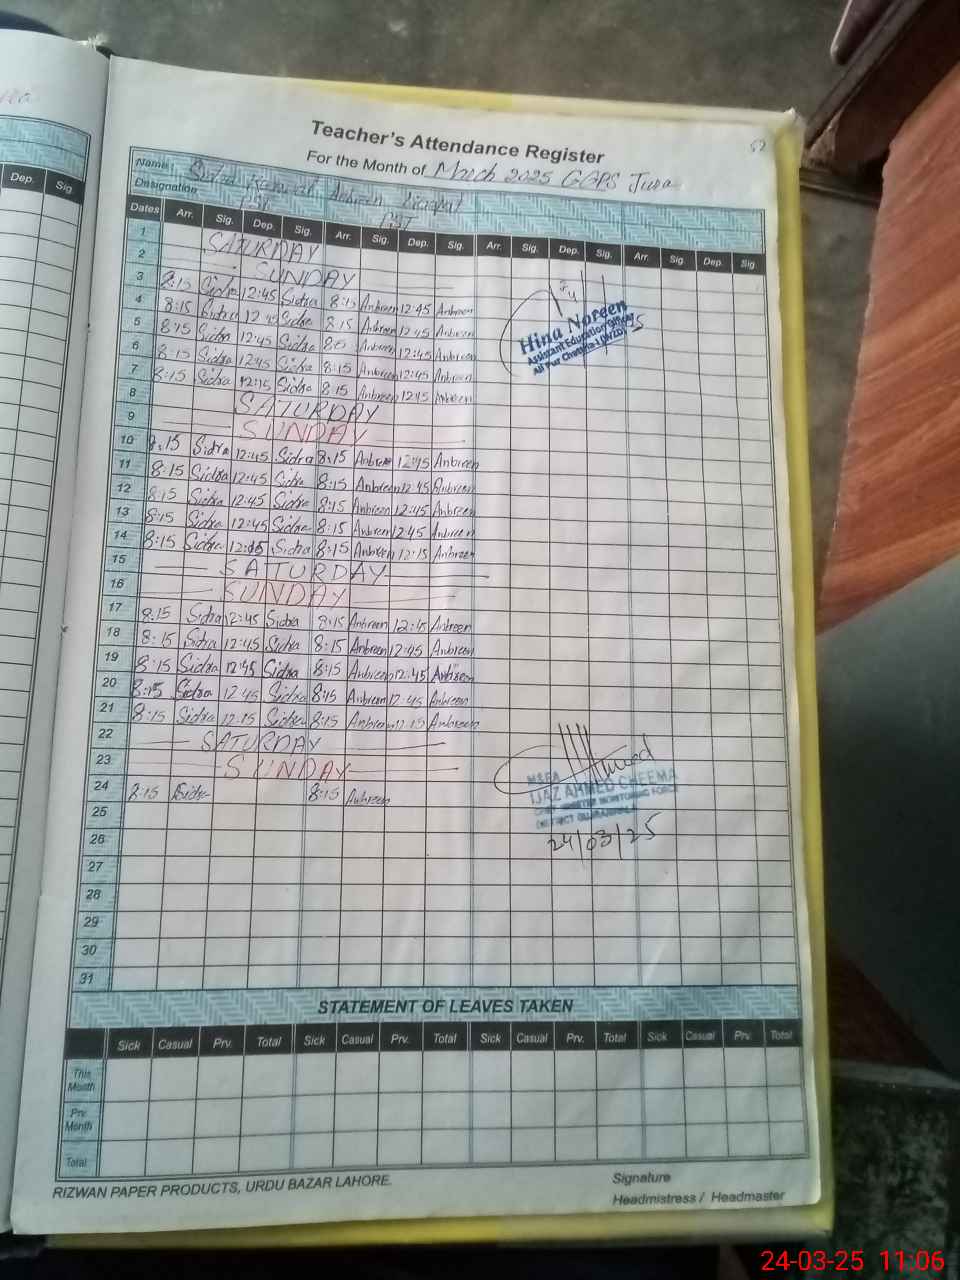 52
Teacher's Attendance Register
For the Month of March 2025 GGPS
Name: Sidra Kanwal Anbreen
Designation PST PST
Dep. Sig.
Dates Arr. Sig. Dep. Sig. Arr. Sig. Dep. Sig. Arr. Sig. Dep. Sig. Arr. Sig. Dep. Sig.
1 SATURDAY
2 SUNDAY
3 8:15 Sidra 12:45 Sidra 8:15 Anbreen 12:45 Anbreen
4 8:15 Sidra 12:45 Sidra 8:15 Anbreen 12:45 Anbreen
5 8:15 Sidra 12:45 Sidra 8:15 Anbreen 12:45 Anbreen
6 8:15 Sidra 12:45 Sidra 8:15 Anbreen 12:45 Anbreen
7 8:15 Sidra 12:15 Sidra 8:15 Anbreen 12:15 Anbreen
Hina Noreen
Assistant Education Officer
8 SATURDAY
9 SUNDAY
10 8:15 Sidra 12:45 Sidra 8:15 Anbreen 12:45 Anbreen
11 8:15 Sidra 12:45 Sidra 8:15 Anbreen 12:45 Anbreen
12 8:15 Sidra 12:45 Sidra 8:15 Anbreen 12:45 Anbreen
13 8:15 Sidra 12:45 Sidra 8:15 Anbreen 12:45 Anbreen
14 8:15 Sidra 12:15 Sidra 8:15 Anbreen 12:15 Anbreen
15 SATURDAY
16 SUNDAY
17 8:15 Sidra 12:45 Sidra 8:15 Anbreen 12:45 Anbreen
18 8:15 Sidra 12:45 Sidra 8:15 Anbreen 12:45 Anbreen
19 8:15 Sidra 12:45 Sidra 8:15 Anbreen 12:45 Anbreen
20 8:15 Sidra 12:45 Sidra 8:15 Anbreen 12:45 Anbreen
21 8:15 Sidra 12:15 Sidra 8:15 Anbreen 12:15 Anbreen
22 SATURDAY
23 SUNDAY
24 8:15 Sidra 8:15 Anbreen
25
26
27
28
29
30
31
IJAZ AHMED CHEEMA
CHIEF MINISTER MONITORING FORCE
DISTRICT GUJRANWALA
24/03/25
STATEMENT OF LEAVES TAKEN
Sick Casual Prv. Total Sick Casual Prv. Total Sick Casual Prv. Total Sick Casual Prv. Total
This Month
Prv. Month
Total
RIZWAN PAPER PRODUCTS, URDU BAZAR LAHORE.
Signature
Headmistress / Headmaster
24-03-25 11:06